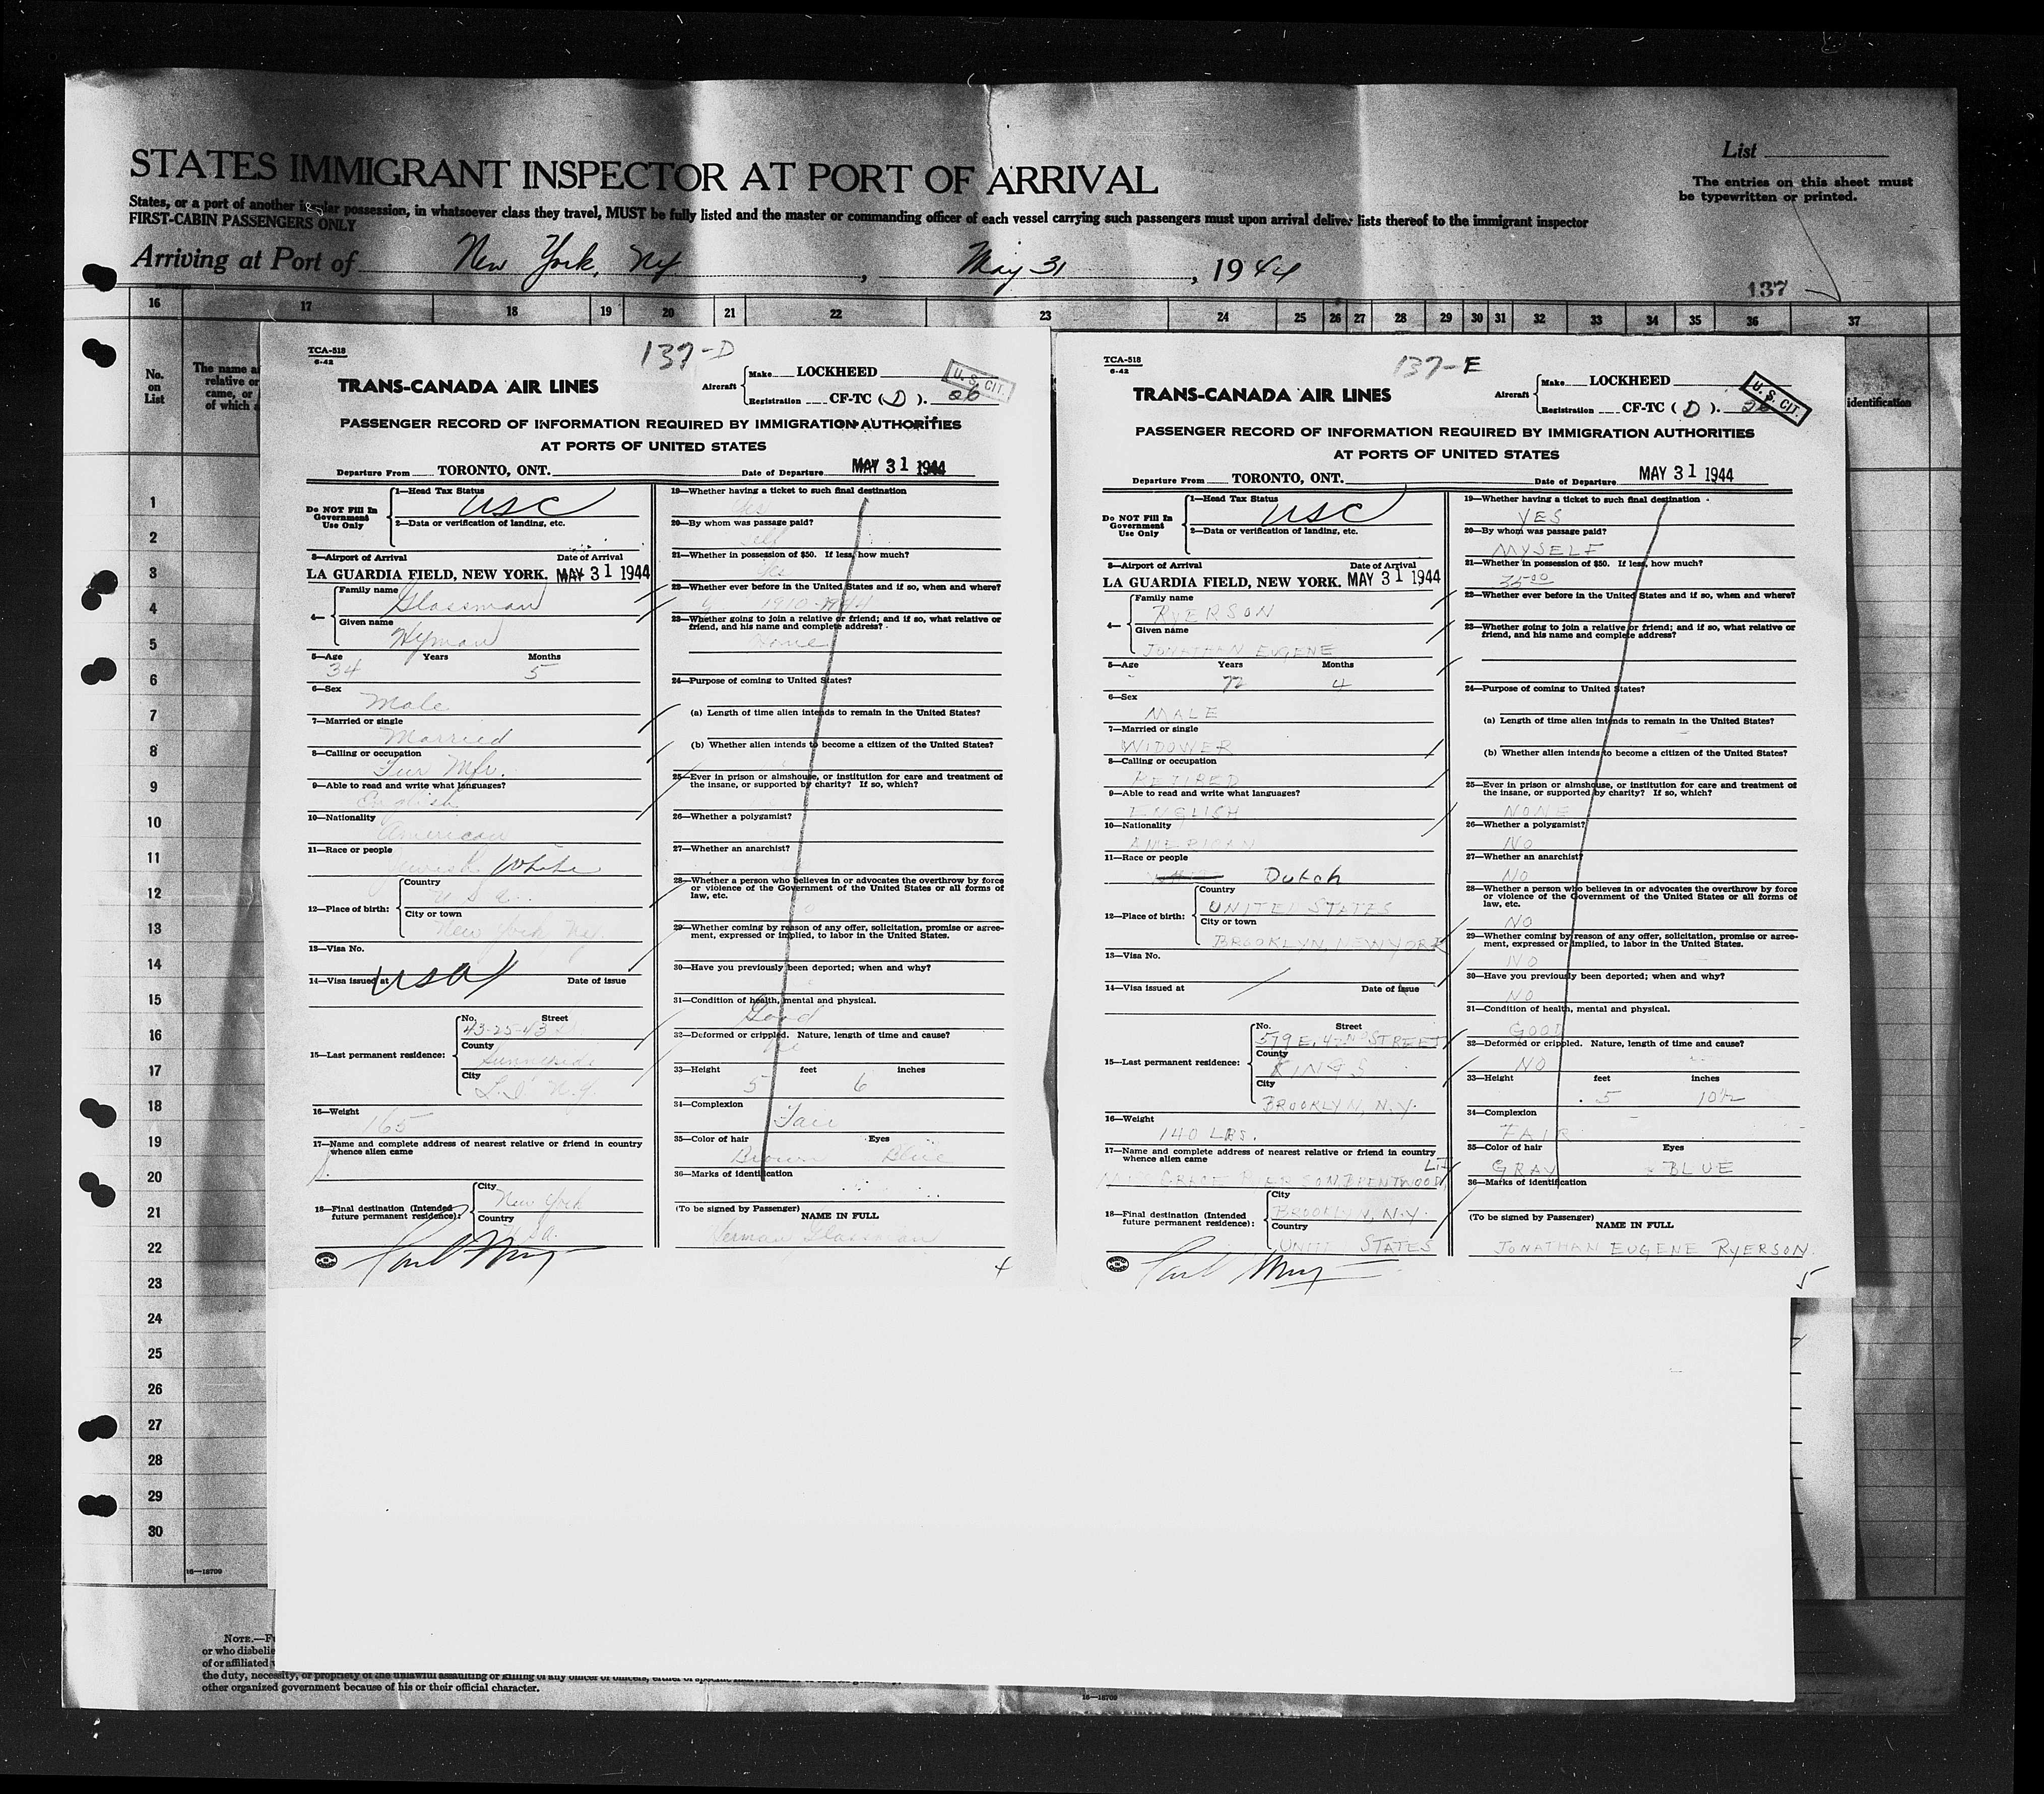 STATES IMMIGRANT INSPECTOR AT PORT OF ARRIVAL
List
The entries on this sheet must
be typewritten or printed.
States, or a port of another insular possession, in whatsoever class they travel, MUST be fully listed and the master or commanding officer of each vessel carrying such passengers must upon arrival deliver lists thereof to the immigrant inspector
FIRST-CABIN PASSENGERS ONLY
Arriving at Port of New York, NY, May 31, 1944
137
16 17 18 19 20 21 22 23 24 25 26 27 28 29 30 31 32 33 34 35 36 37
No.
on
List
The name a
relative or
came, or
of which
identification
1
2
3
4
5
6
7
8
9
10
11
12
13
14
15
16
17
18
19
20
21
22
23
24
25
26
27
28
29
30
TCA-518
6-42
137-D
TRANS-CANADA AIR LINES
Aircraft
Make LOCKHEED
Registration CF-TC (D). 26
U. S. CIT.
PASSENGER RECORD OF INFORMATION REQUIRED BY IMMIGRATION AUTHORITIES
AT PORTS OF UNITED STATES
Departure From TORONTO, ONT. Date of Departure MAY 31 1944
Do NOT Fill In
Government
Use Only
1—Head Tax Status USC
2—Data or verification of landing, etc.
3—Airport of Arrival Date of Arrival
LA GUARDIA FIELD, NEW YORK. MAY 31 1944
4—
Family name Glassman
Given name Hyman
5—Age Years Months
34 5
6—Sex
Male
7—Married or single
Married
8—Calling or occupation
Fur Mfr.
9—Able to read and write what languages?
English
10—Nationality
American
11—Race or people
White
12—Place of birth:
Country
U S a.
City or town
New York Ny.
13—Visa No.
14—Visa issued at USA Date of issue
15—Last permanent residence:
No. Street
43-25-43
County
Sunnyside
City
L.I. N.Y
16—Weight
165
17—Name and complete address of nearest relative or friend in country
whence alien came
18—Final destination (Intended
future permanent residence):
City
New York
Country
USA.
19—Whether having a ticket to such final destination
Yes
20—By whom was passage paid?
Self
21—Whether in possession of $50. If less, how much?
Yes
22—Whether ever before in the United States and if so, when and where?
1910-1944
23—Whether going to join a relative or friend; and if so, what relative or
friend, and his name and complete address?
None
24—Purpose of coming to United States?
(a) Length of time alien intends to remain in the United States?
(b) Whether alien intends to become a citizen of the United States?
25—Ever in prison or almshouse, or institution for care and treatment of
the insane, or supported by charity? If so, which?
26—Whether a polygamist?
27—Whether an anarchist?
28—Whether a person who believes in or advocates the overthrow by force
or violence of the Government of the United States or all forms of
law, etc.
29—Whether coming by reason of any offer, solicitation, promise or agree-
ment, expressed or implied, to labor in the United States.
30—Have you previously been deported; when and why?
31—Condition of health, mental and physical.
Good
32—Deformed or crippled. Nature, length of time and cause?
33—Height feet inches
5 6
34—Complexion
Fair
35—Color of hair Eyes
Brown Blue
36—Marks of identification
(To be signed by Passenger)
NAME IN FULL
Herman Glassman
4
TCA-518
6-42
137-E
TRANS-CANADA AIR LINES
Aircraft
Make LOCKHEED
Registration CF-TC (D). 26
U. S. CIT.
PASSENGER RECORD OF INFORMATION REQUIRED BY IMMIGRATION AUTHORITIES
AT PORTS OF UNITED STATES
Departure From TORONTO, ONT. Date of Departure MAY 31 1944
Do NOT Fill In
Government
Use Only
1—Head Tax Status USC
2—Data or verification of landing, etc.
3—Airport of Arrival Date of Arrival
LA GUARDIA FIELD, NEW YORK. MAY 31 1944
4—
Family name
RYERSON
Given name
JONATHAN EUGENE
5—Age Years Months
72 4
6—Sex
MALE
7—Married or single
WIDOWER
8—Calling or occupation
RETIRED
9—Able to read and write what languages?
ENGLISH
10—Nationality
AMERICAN
11—Race or people
Dutch
12—Place of birth:
Country
UNITED STATES
City or town
BROOKLYN, NEW YORK
13—Visa No.
14—Visa issued at Date of issue
15—Last permanent residence:
No. Street
579 E. 42ND STREET
County
KINGS
City
BROOKLYN, N.Y.
16—Weight
140 LBS.
17—Name and complete address of nearest relative or friend in country
whence alien came
GRACE RYERSON BRENTWOOD, L.I.
18—Final destination (Intended
future permanent residence):
City
BROOKLYN, N.Y.
Country
UNITED STATES
19—Whether having a ticket to such final destination
YES
20—By whom was passage paid?
MYSELF
21—Whether in possession of $50. If less, how much?
35.00
22—Whether ever before in the United States and if so, when and where?
23—Whether going to join a relative or friend; and if so, what relative or
friend, and his name and complete address?
24—Purpose of coming to United States?
(a) Length of time alien intends to remain in the United States?
(b) Whether alien intends to become a citizen of the United States?
25—Ever in prison or almshouse, or institution for care and treatment of
the insane, or supported by charity? If so, which?
NONE
26—Whether a polygamist?
NO
27—Whether an anarchist?
NO
28—Whether a person who believes in or advocates the overthrow by force
or violence of the Government of the United States or all forms of
law, etc.
NO
29—Whether coming by reason of any offer, solicitation, promise or agree-
ment, expressed or implied, to labor in the United States.
NO
30—Have you previously been deported; when and why?
NO
31—Condition of health, mental and physical.
GOOD
32—Deformed or crippled. Nature, length of time and cause?
NO
33—Height feet inches
5 10½
34—Complexion
FAIR
35—Color of hair Eyes
GRAY BLUE
36—Marks of identification
(To be signed by Passenger)
NAME IN FULL
JONATHAN EUGENE RYERSON.
5
16—18709
NOTE.—F
or who disbelie
of or affiliated
the duty, necessity, or propriety of the unlawful assaulting or killing of any officer or officers,
other organized government because of his or their official character.
16—18709